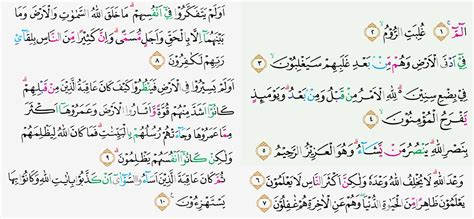 الۤمّۤ ۚ ١ غُلِبَتِ الرُّوْمُۙ ٢
فِيْٓ اَدْنَى الْاَرْضِ وَهُمْ مِّنْۢ بَعْدِ غَلَبِهِمْ سَيَغْلِبُوْنَۙ ٣
فِيْ بِضْعِ سِنِيْنَ ەۗ لِلّٰهِ الْاَمْرُ مِنْ قَبْلُ وَمِنْۢ بَعْدُ ۗوَيَوْمَىِٕذٍ
يَّفْرَحُ الْمُؤْمِنُوْنَۙ ٤
بِنَصْرِ اللّٰهِ ۗيَنْصُرُ مَنْ يَّشَاۤءُۗ وَهُوَ الْعَزِيْزُ الرَّحِيْمُ ٥
وَعْدَ اللّٰهِ ۗ لَا يُخْلِفُ اللّٰهُ وَعْدَهٗ وَلٰكِنَّ اَكْثَرَ النَّاسِ لَا يَعْلَمُوْنَ ٦
يَعْلَمُوْنَ ظَاهِرًا مِّنَ الْحَيٰوةِ الدُّنْيَاۖ وَهُمْ عَنِ الْاٰخِرَةِ هُمْ غٰفِلُوْنَ ٧
اَوَلَمْ يَتَفَكَّرُوْا فِيْٓ اَنْفُسِهِمْ ۗ مَا خَلَقَ اللّٰهُ السَّمٰوٰتِ وَالْاَرْضَ وَمَا
بَيْنَهُمَآ اِلَّا بِالْحَقِّ وَاَجَلٍ مُّسَمًّىۗ وَاِنَّ كَثِيْرًا مِّنَ النَّاسِ بِلِقَاۤئِ
رَبِّهِمْ لَكٰفِرُوْنَ ٨
اَوَلَمْ يَسِيْرُوْا فِى الْاَرْضِ فَيَنْظُرُوْا كَيْفَ كَانَ عَاقِبَةُ الَّذِيْنَ مِنْ قَبْلِهِمْۗ
كَانُوْٓا اَشَدَّ مِنْهُمْ قُوَّةً وَّاَثَارُوا الْاَرْضَ وَعَمَرُوْهَآ اَكْثَرَ
مِمَّا عَمَرُوْهَا وَجَاۤءَتْهُمْ رُسُلُهُمْ بِالْبَيِّنٰتِۗ فَمَا كَانَ اللّٰهُ لِيَظْلِمَهُمْ
وَلٰكِنْ كَانُوْٓا اَنْفُسَهُمْ يَظْلِمُوْنَۗ ٩
ثُمَّ كَانَ عَاقِبَةَ الَّذِيْنَ اَسَاۤءُوا السُّوْۤاٰىٓ اَنْ كَذَّبُوْا بِاٰيٰتِ اللّٰهِ وَكَانُوْا بِهَا
يَسْتَهْزِءُوْنَ ١٠